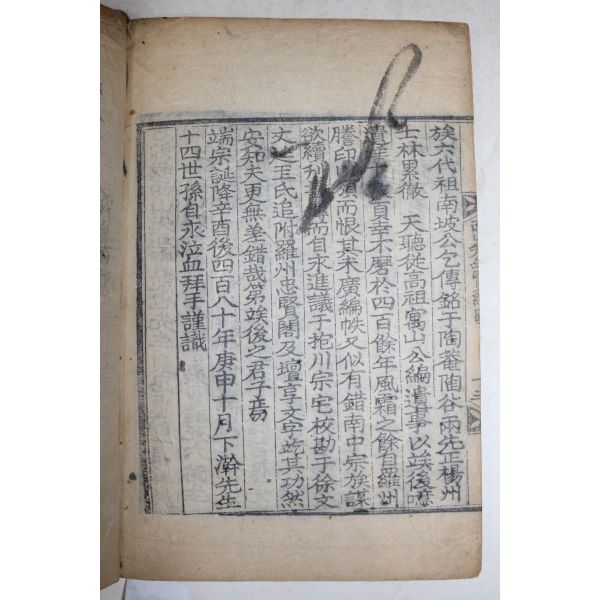 族六代祖南坡公乞傳銘于陶菴陶谷兩先正楊州
士林累徹 天聽從高祖寓山公編遺事以竢後噫
幸不磨於四百餘年風霜之餘自羅州
謄印 而恨其未廣編帙又似有錯南中宗族謀
欲續刊 而自永進議于抱川宗宅校勘于徐文
文 王氏追附羅州忠賢閣及壇享文字訖其功然
安知夫更無差錯哉第竢後之君子正
端宗誕降辛酉後四百八十年庚申十月下澣先生
十四世孫自永泣血拜手謹識